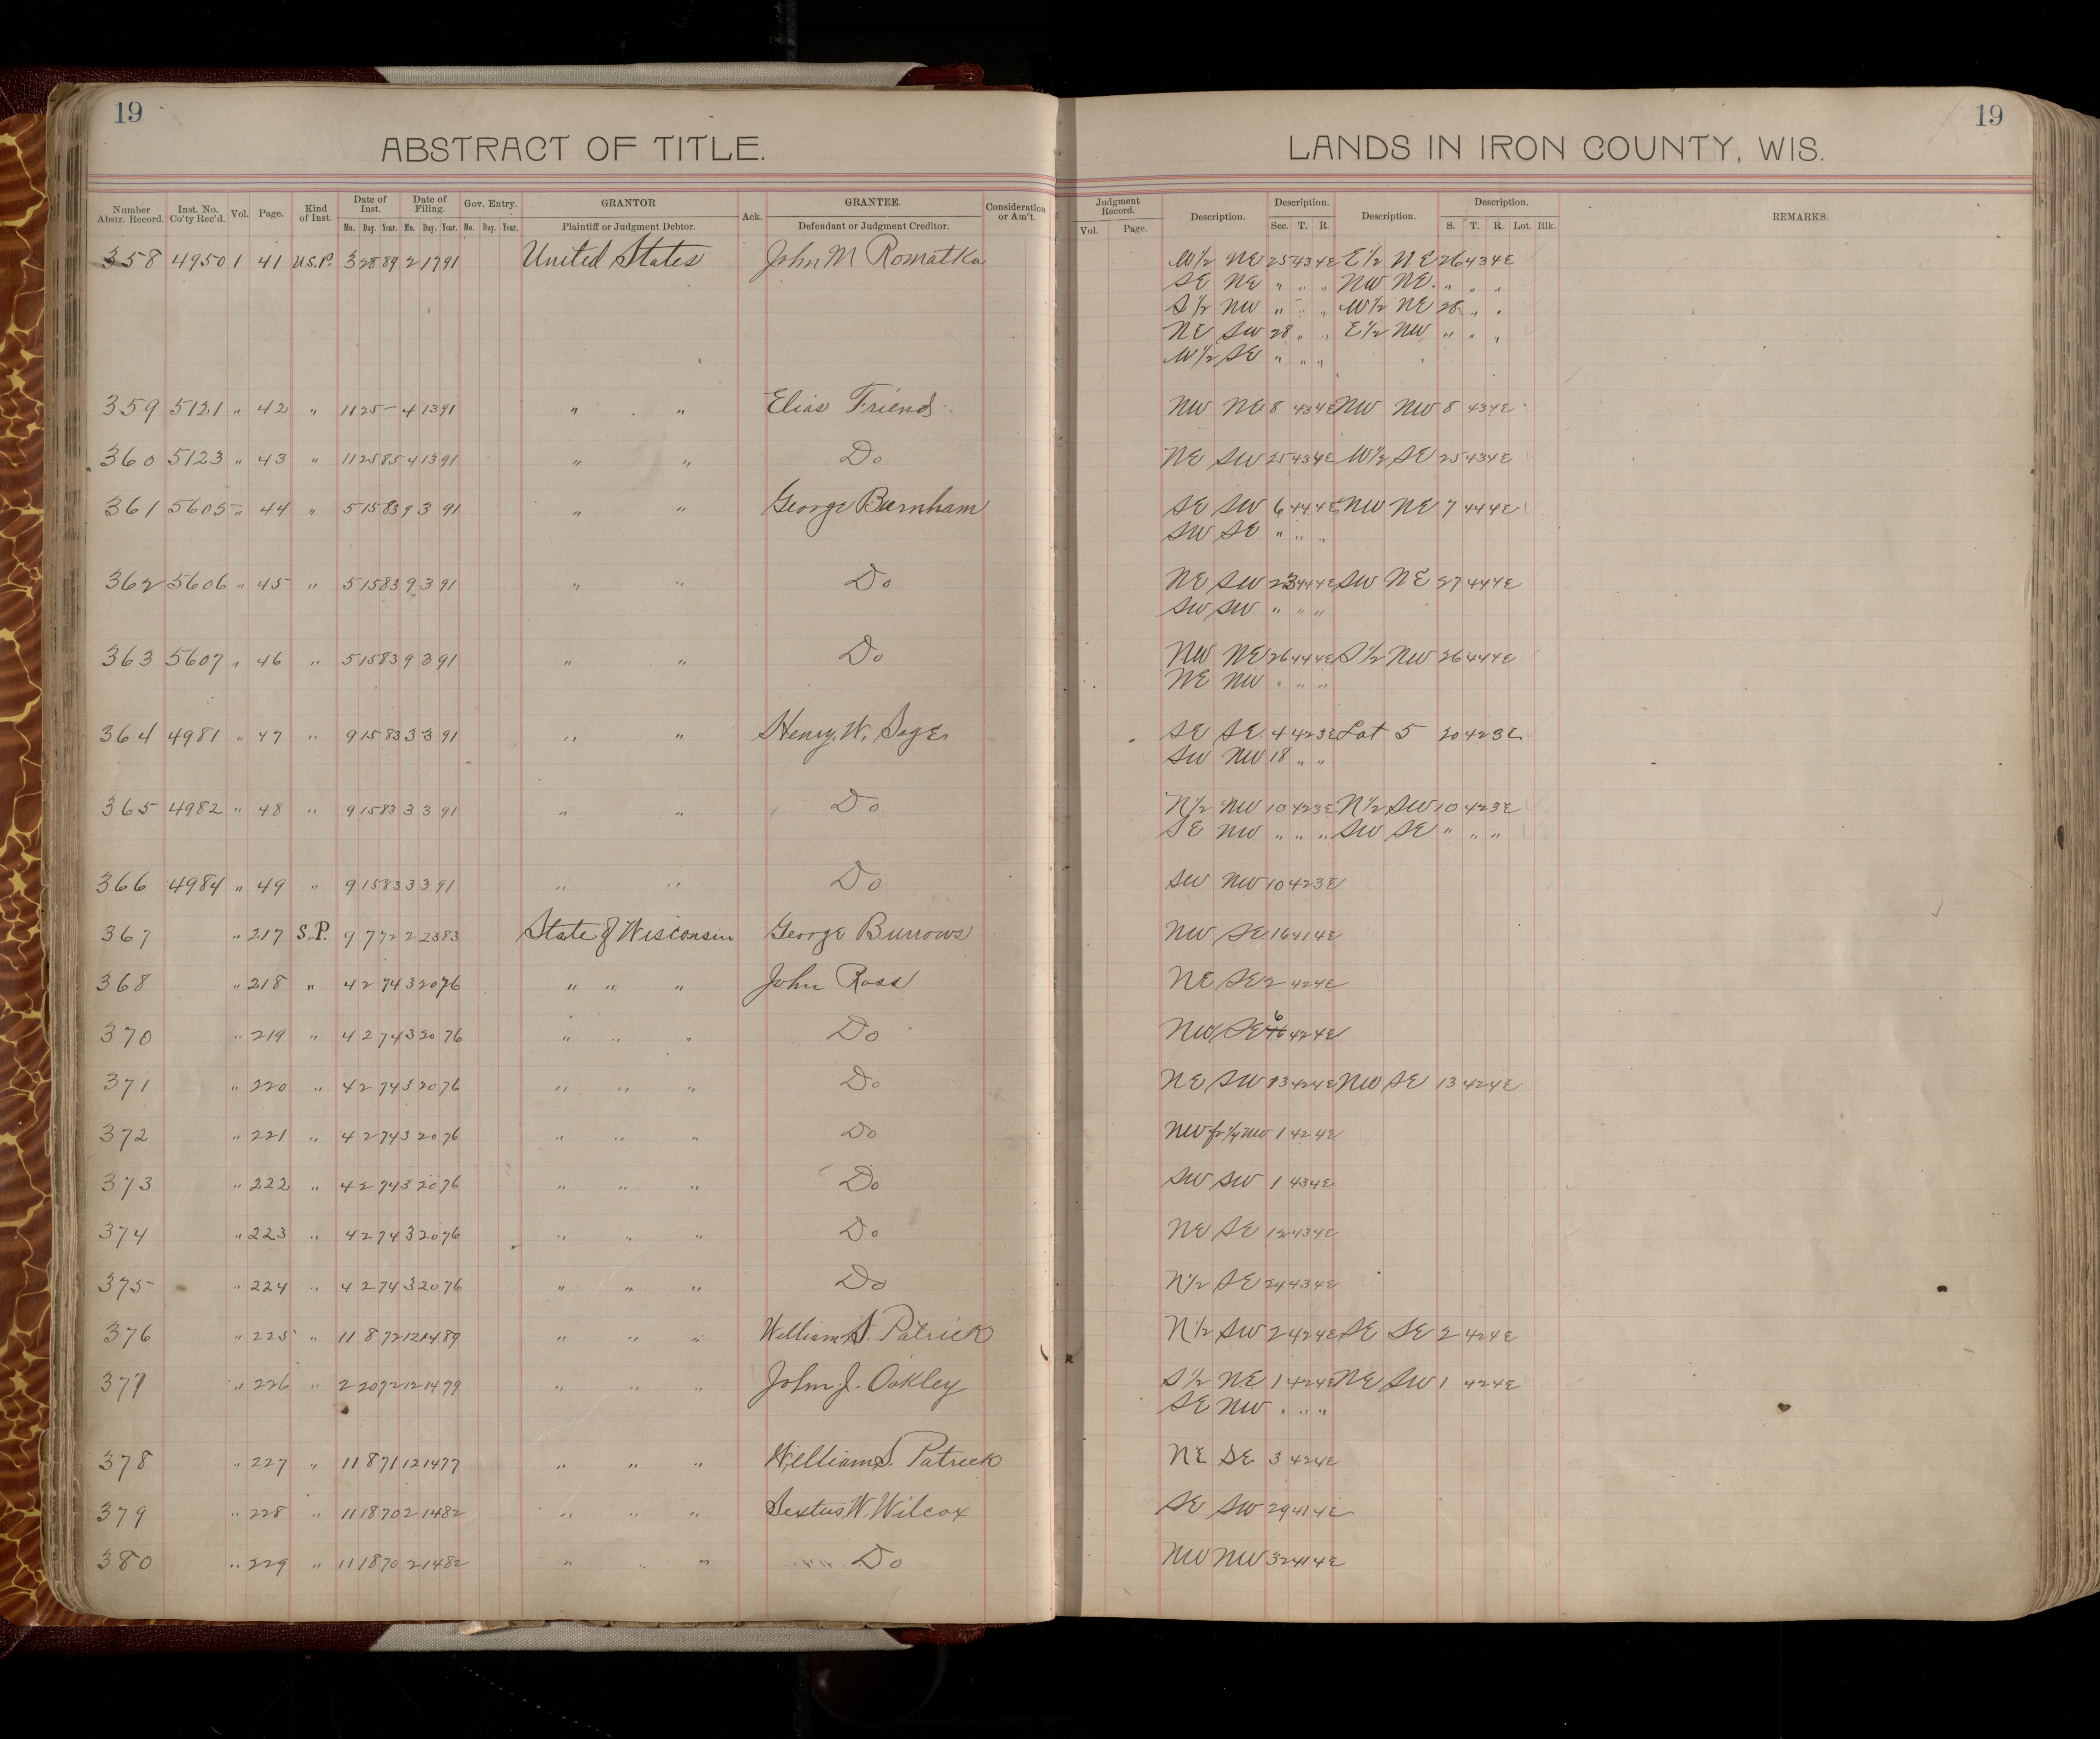 19
19
ABSTRACT OF TITLE.
LANDS IN IRON COUNTY, WIS.
Number Abstr. Record. Inst. No. Co'ty Rec'd. Vol. Page. Kind of Inst. Date of Inst. Mo. Day. Year. Date of Filing. Mo. Day. Year. Gov. Entry. Mo. Day. Year. GRANTOR Plaintiff or Judgment Debtor. Ack. GRANTEE. Defendant or Judgment Creditor. Consideration or Am't. Judgment Record. Vol. Page. Description. Description. Sec. T. R. Description. Description. S. T. R. Lot. Blk. REMARKS.
358 4950 1 41 U.S.P. 3 28 89 2 17 91 United States John M Romatka W½ NE 25 43 4E E½ NE 26 43 4E
SE NE " " " NW NE " " "
S½ NW " " " W½ NE 28 " "
NE SW 28 " " E½ NW " " "
W½ SE " " "
359 5121 " 42 " 11 25 – 4 13 91 " " Elias Friend NW NE 8 43 4E NW NW 8 43 4E
360 5123 " 43 " 11 25 85 4 13 91 " " Do NE SW 25 43 4E W½ SE 25 43 4E
361 5605 " 44 " 5 15 83 9 3 91 " " George Burnham SE SW 6 44 4E NW NE 7 44 4E
SW SE " " "
362 5606 " 45 " 5 15 83 9 3 91 " " Do NE SW 23 44 4E SW NE 27 44 4E
SW SW " " "
363 5607 " 46 " 5 15 83 9 3 91 " " Do NW NE 26 44 4E S½ NW 26 44 4E
NE NW " " "
364 4981 " 47 " 9 15 83 3 3 91 " " Henry W. Sage SE SE 4 42 3E Lot 5 20 42 3E
SW NW 18 " "
365 4982 " 48 " 9 15 83 3 3 91 " " Do N½ NW 10 42 3E N½ SW 10 42 3E
SE NW " " " SW SE " " "
366 4984 " 49 " 9 15 83 3 3 91 " " Do SW NW 10 42 3E
367 " 217 S.P. 9 7 72 2 23 83 State of Wisconsin George Burrows NW SE 16 41 4E
368 " 218 " 4 2 74 3 20 76 " " " John Ross NE SE 2 42 4E
370 " 219 " 4 2 74 3 20 76 " " " Do NW SE 6 42 4E
371 " 220 " 4 2 74 3 20 76 " " " Do NE SW 13 42 4E NW SE 13 42 4E
372 " 221 " 4 2 74 3 20 76 " " " Do NW fr ¼ NW 1 42 4E
373 " 222 " 4 2 74 3 20 76 " " " Do SW SW 1 43 4E
374 " 223 " 4 2 74 3 20 76 " " " Do NE SE 12 43 4E
375 " 224 " 4 2 74 3 20 76 " " " Do N½ SE 24 43 4E
376 " 225 " 11 8 72 12 14 89 " " " William S. Patrick N½ SW 2 42 4E SE SE 2 42 4E
377 " 226 " 2 20 72 12 14 79 " " " John J. Oakley S½ NE 1 42 4E NE SW 1 42 4E
SE NW " " "
378 " 227 " 11 8 71 12 14 77 " " " William S. Patrick NE SE 3 42 4E
379 " 228 " 11 18 70 2 14 82 " " " Sextus W. Wilcox SE SW 29 41 4E
380 " 229 " 11 18 70 2 14 82 " " " Do NW NW 32 41 4E